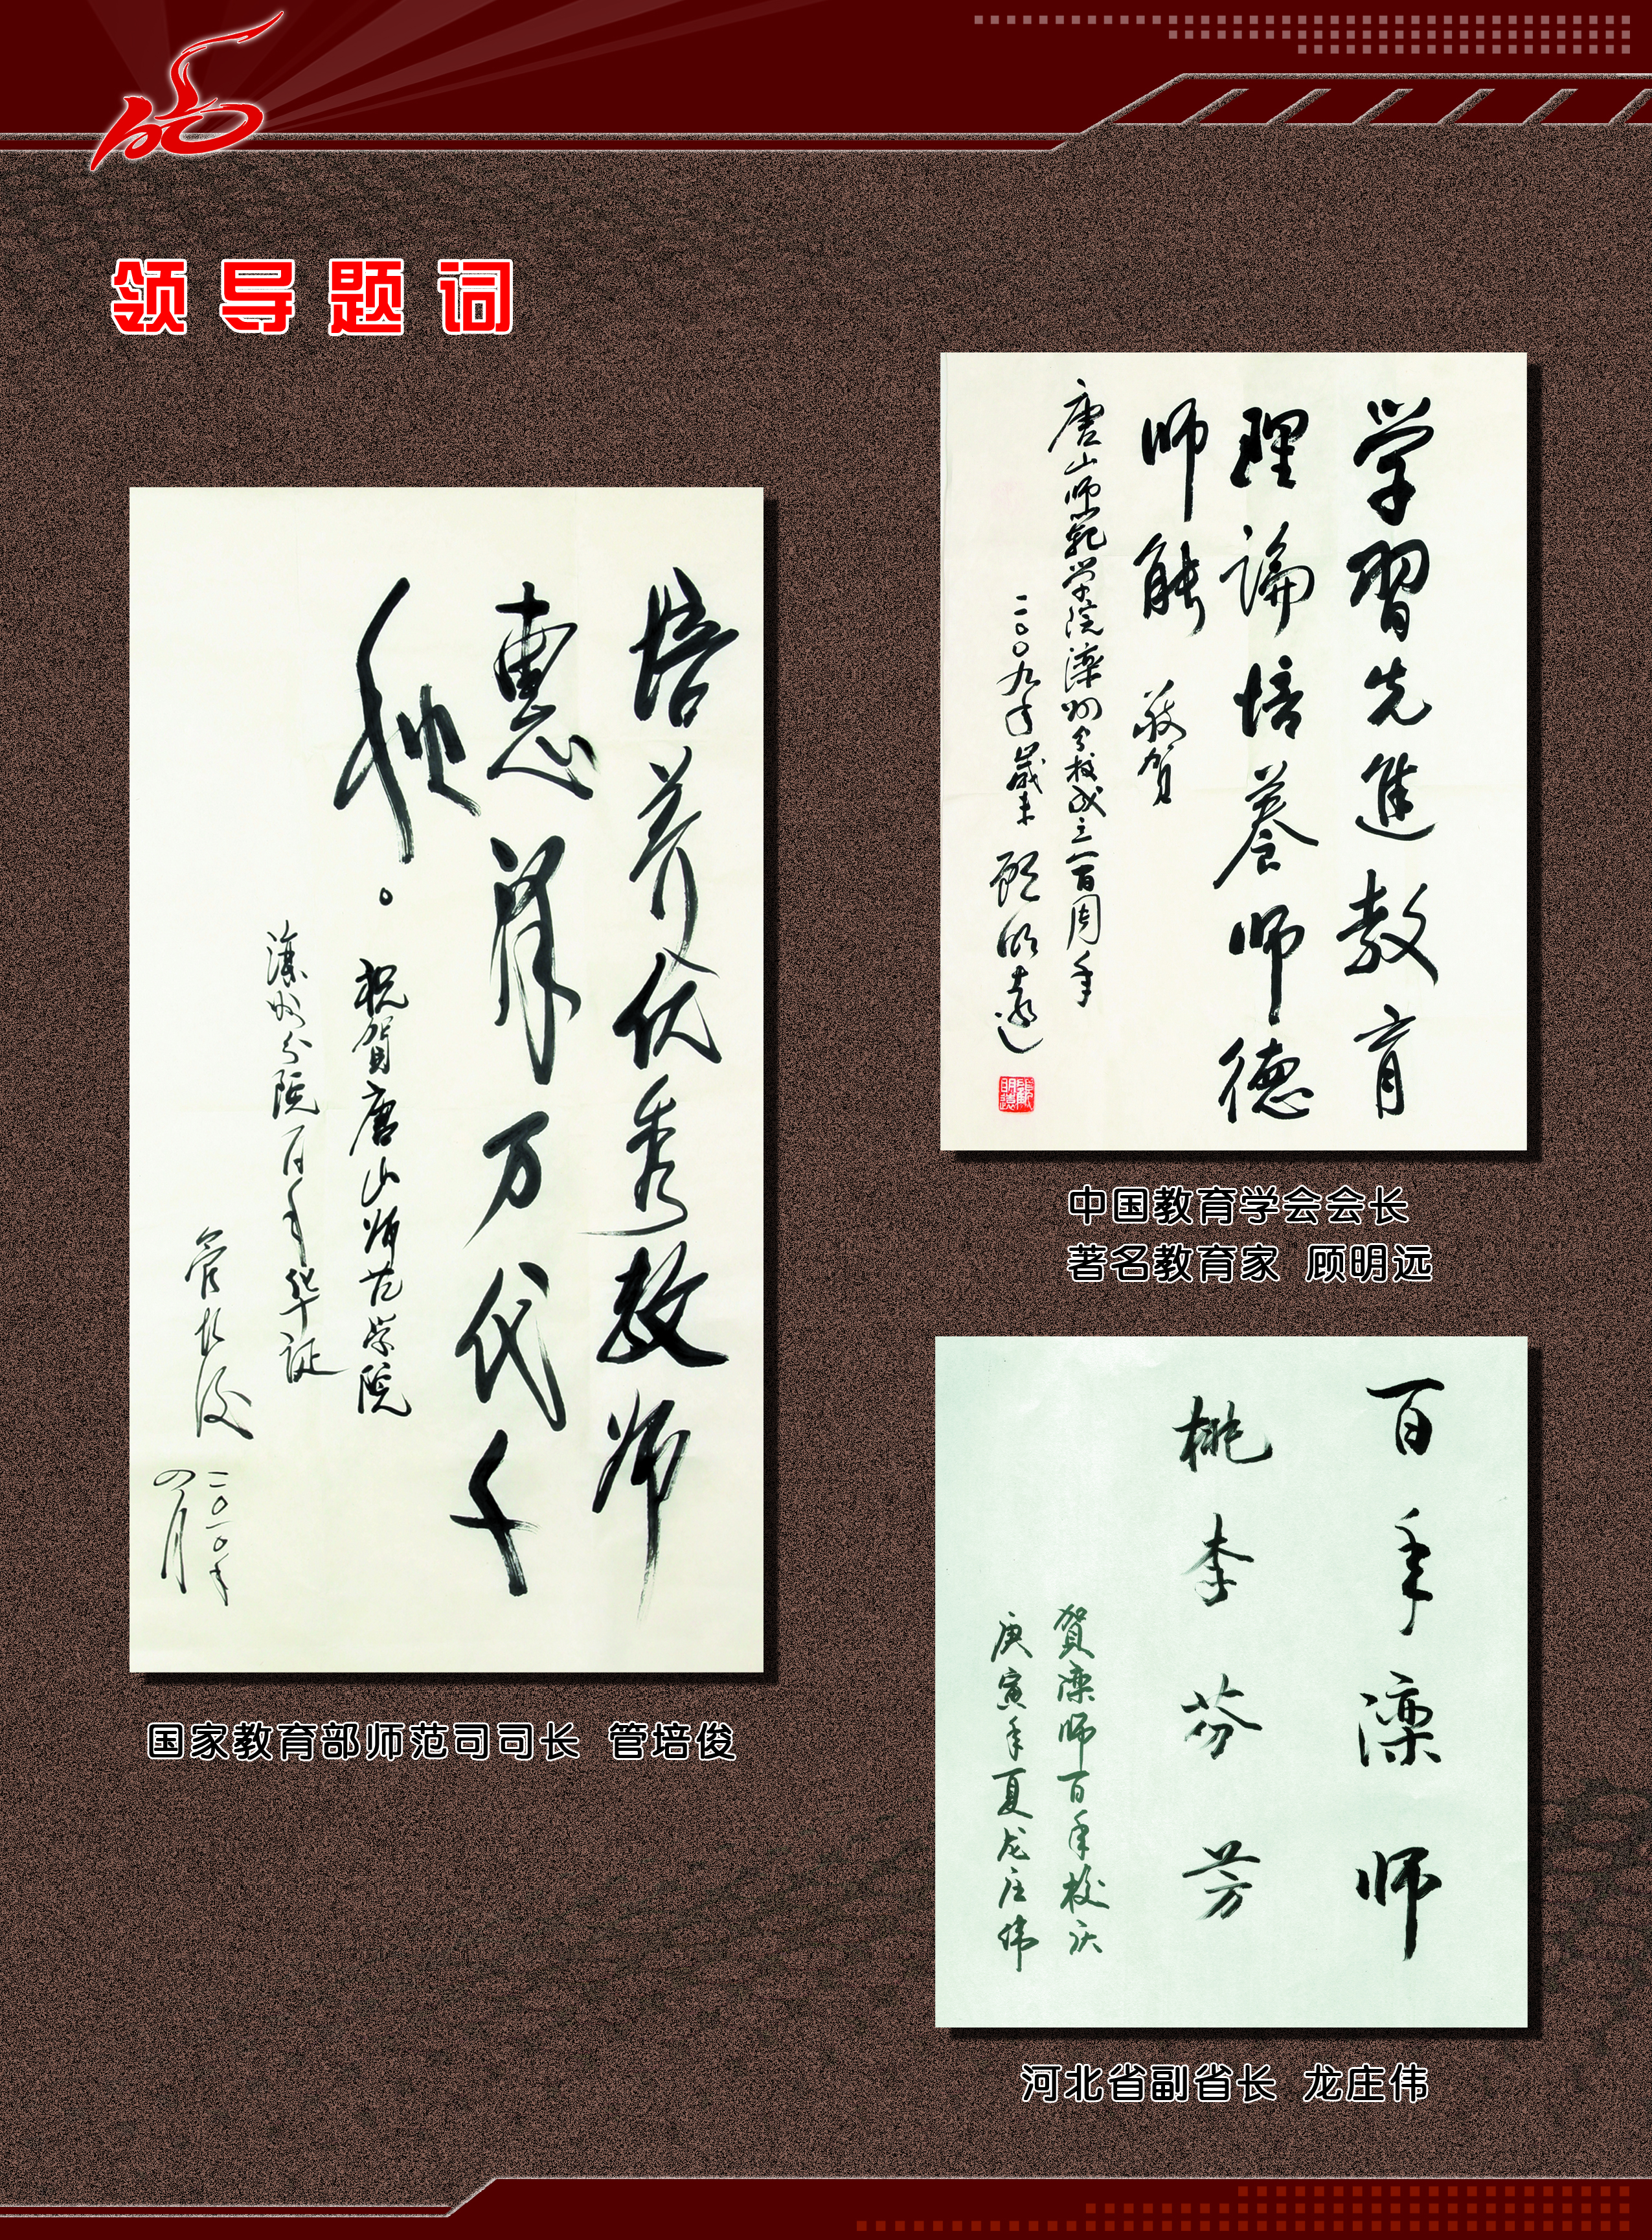 领导题词
培养优秀教师
惠泽万代千
秋。
祝贺唐山师范学院
滦州分院百年华诞
管培俊
二〇一〇年
四月
国家教育部师范司司长 管培俊
学习先進教育
理論培養师德
师能 敬贺
唐山师範学院滦州分校成立一百周年
二〇〇九年歲末 顾明遠
中国教育学会会长
著名教育家 顾明远
百年滦师
桃李芬芳
贺滦师百年校庆
庚寅年夏龙庄伟
河北省副省长 龙庄伟